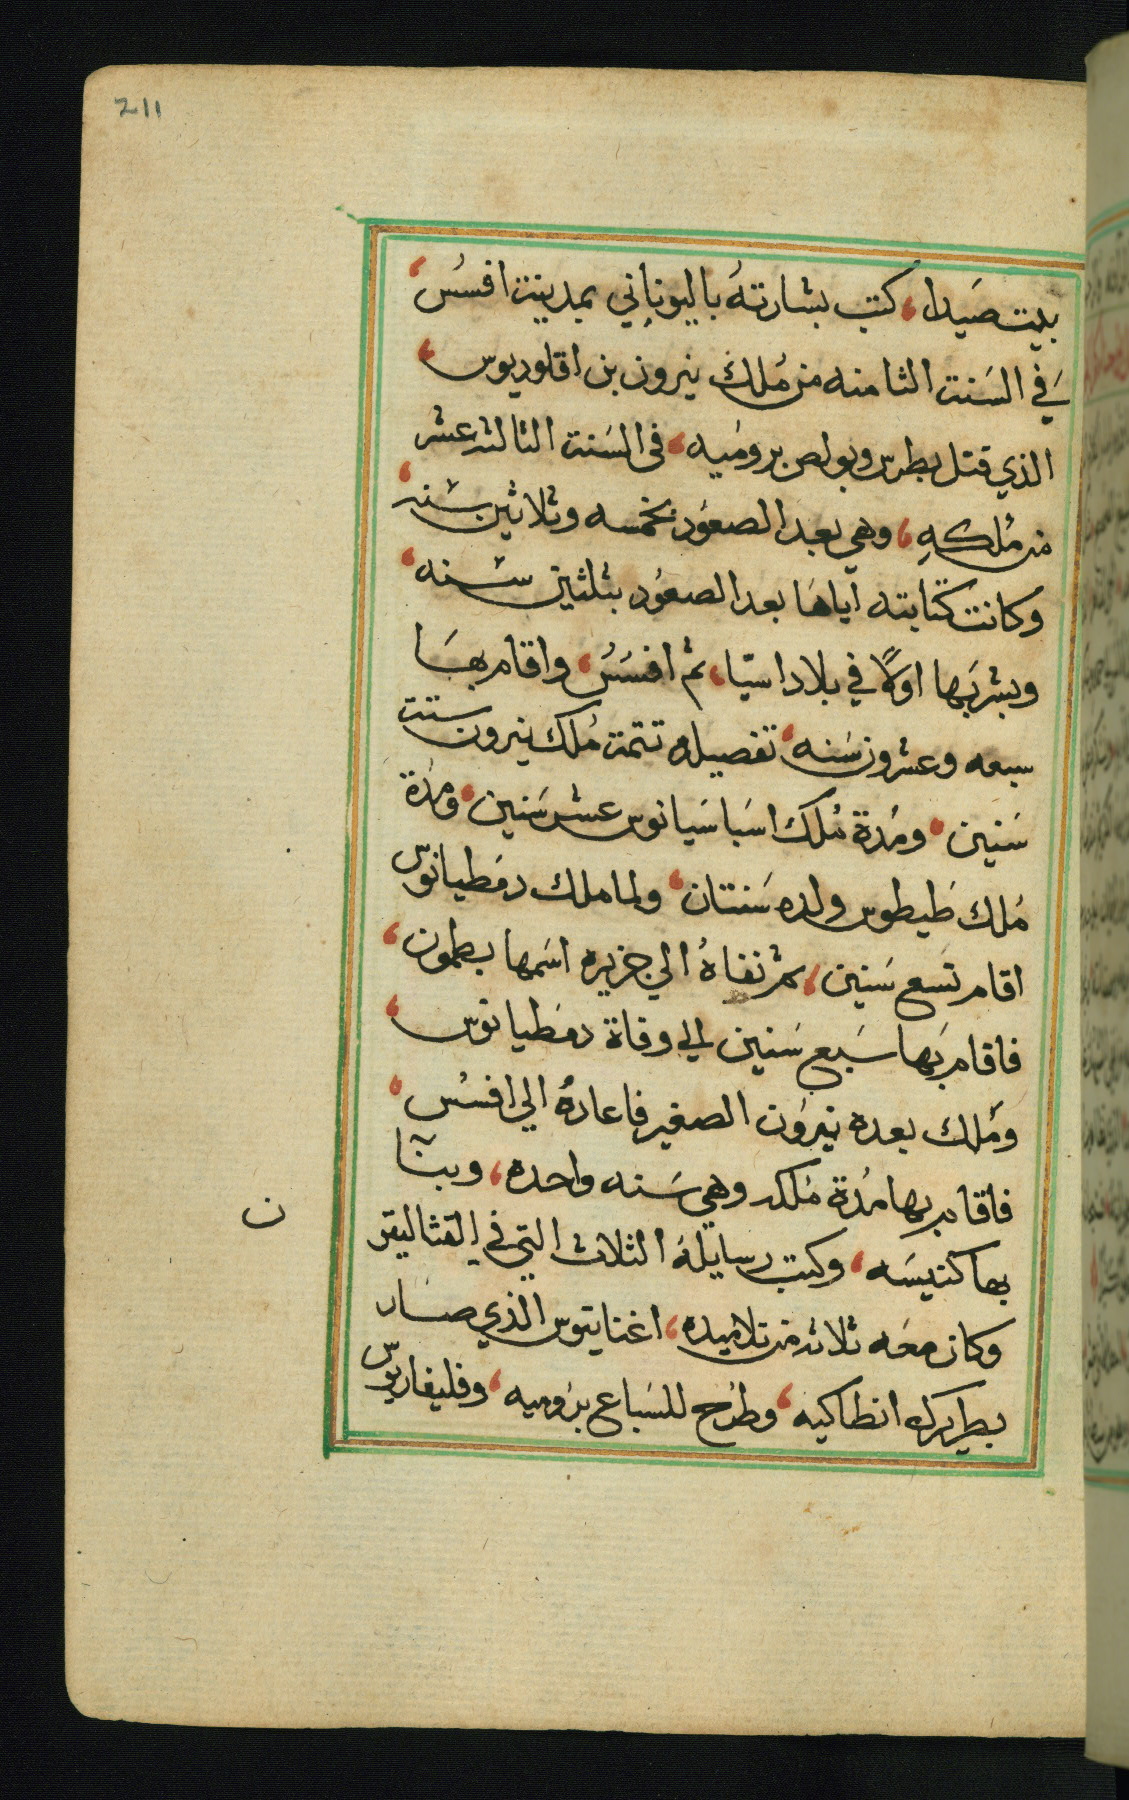 211
بيت صَيدا، كتب بشارتهُ باليوناني بمدينت افسُس،
في السَنت الثامنه من مُلك نيرون بن اقلوديوس،
الذي قتل بطرس وبولص بروميه، في السَنت الثالث عشر
من مُلكهِ، وهي بعد الصعُود بخمسه وثلاثين سنه،
وكانت كتابته اياها بعد الصعُود بثلثين سنه،
وبشر بَها اولاً في بلاد اسيّا، ثم افسَسُ، واقام بهَا
سبعه وعشرون سَنه، تفصيله تتمت مُلك نيرون ستت
سَنين، ومُدة مُلك اسَباسَيانوس عشر سَنين، ومُدة
مُلك طَيطوس ولده سَنتان، ولما ملك دمَطيانوس
اقام تسَع سَنين، ثم نفاهُ الي جزيره اسَمها بطمون،
فاقام بَها سَبع سَنين الي وفاة دمَطيانوس،
ومَلك بعده نيرَون الصغير فاعادهُ الي افسُس،
فاقام بها مُدة مُلكه وهي سَنه واحده، وبنا
بها كنيسَه، وكتب رسايلهُ الثلاث التي في القثاليقر
وكان معَه ثلاثه من تلاميده، اغناتيوس الذي صَار
بطريرك انطاكيه، وطرُح للسَباع بروميه، وفليفاربوس
ن